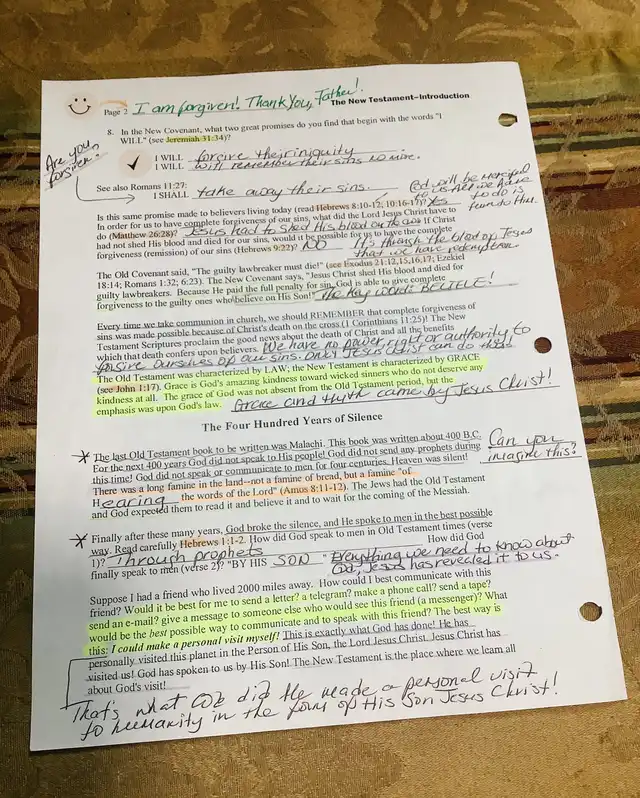 Page 2 I am forgiven! Thank You, Father!
The New Testament–Introduction
Are you
forgiven?
8. In the New Covenant, what two great promises do you find that begin with the words "I
WILL" (see Jeremiah 31:34)?
I WILL forgive their iniquity
I WILL will remember their sins no more.
See also Romans 11:27:
I SHALL take away their sins.
God will be merciful
to us. All we have
to do is
turn to Him.
Is this same promise made to believers living today (read Hebrews 8:10-12; 10:16-17)? Yes
In order for us to have complete forgiveness of our sins, what did the Lord Jesus Christ have to
do (Matthew 26:28)? Jesus had to shed His blood on the cross If Christ
had not shed His blood and died for our sins, would it be possible for us to have the complete
forgiveness (remission) of our sins (Hebrews 9:22)? NO It's through the blood of Jesus
that we have redemption.
The Old Covenant said, "The guilty lawbreaker must die!" (see Exodus 21:12,15,16,17; Ezekiel
18:14; Romans 1:32; 6:23). The New Covenant says, "Jesus Christ shed His blood and died for
guilty lawbreakers. Because He paid the full penalty for sin, God is able to give complete
forgiveness to the guilty ones who believe on His Son!" The Key Word: BELIEVE!
Every time we take communion in church, we should REMEMBER that complete forgiveness of
sins was made possible because of Christ's death on the cross (1 Corinthians 11:25)! The New
Testament Scriptures proclaim the good news about the death of Christ and all the benefits
which that death confers upon believers. We have no power, right or authority to
forgive ourselves of our sins. Only Jesus Christ can do that!
The Old Testament was characterized by LAW; the New Testament is characterized by GRACE
(see John 1:17). Grace is God's amazing kindness toward wicked sinners who do not deserve any
kindness at all. The grace of God was not absent from the Old Testament period, but the
emphasis was upon God's law. Grace and truth came by Jesus Christ!
The Four Hundred Years of Silence
The last Old Testament book to be written was Malachi. This book was written about 400 B.C.
For the next 400 years God did not speak to His people! God did not send any prophets during
this time! God did not speak or communicate to men for four centuries. Heaven was silent!
There was a long famine in the land--not a famine of bread, but a famine "of
Hearing the words of the Lord" (Amos 8:11-12). The Jews had the Old Testament
and God expected them to read it and believe it and to wait for the coming of the Messiah.
Can you
imagine this?
Finally after these many years, God broke the silence, and He spoke to men in the best possible
way. Read carefully Hebrews 1:1-2. How did God speak to men in Old Testament times (verse
1)? Through prophets How did God
finally speak to men (verse 2)? "BY HIS SON " Everything we need to know about
God, Jesus has revealed it to us.
Suppose I had a friend who lived 2000 miles away. How could I best communicate with this
friend? Would it be best for me to send a letter? a telegram? make a phone call? send a tape?
send an e-mail? give a message to someone else who would see this friend (a messenger)? What
would be the best possible way to communicate and to speak with this friend? The best way is
this: I could make a personal visit myself! This is exactly what God has done! He has
personally visited this planet in the Person of His Son, the Lord Jesus Christ. Jesus Christ has
visited us! God has spoken to us by His Son! The New Testament is the place where we learn all
about God's visit!
That's what God did He made a personal visit
to humanity in the form of His Son Jesus Christ!